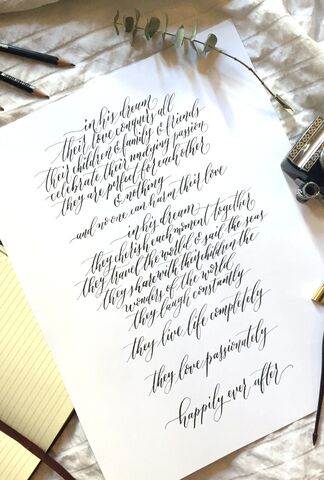 in his dream
their love conquers all
their children & family & friends
celebrate their undying passion
they are perfect for each other
& nothing
and no one can harm their love
in his dream
they cherish each moment together
they travel the world & sail the seas
they share with their children the
wonders of the world
they laugh constantly
they live life completely
they love passionately
happily ever after